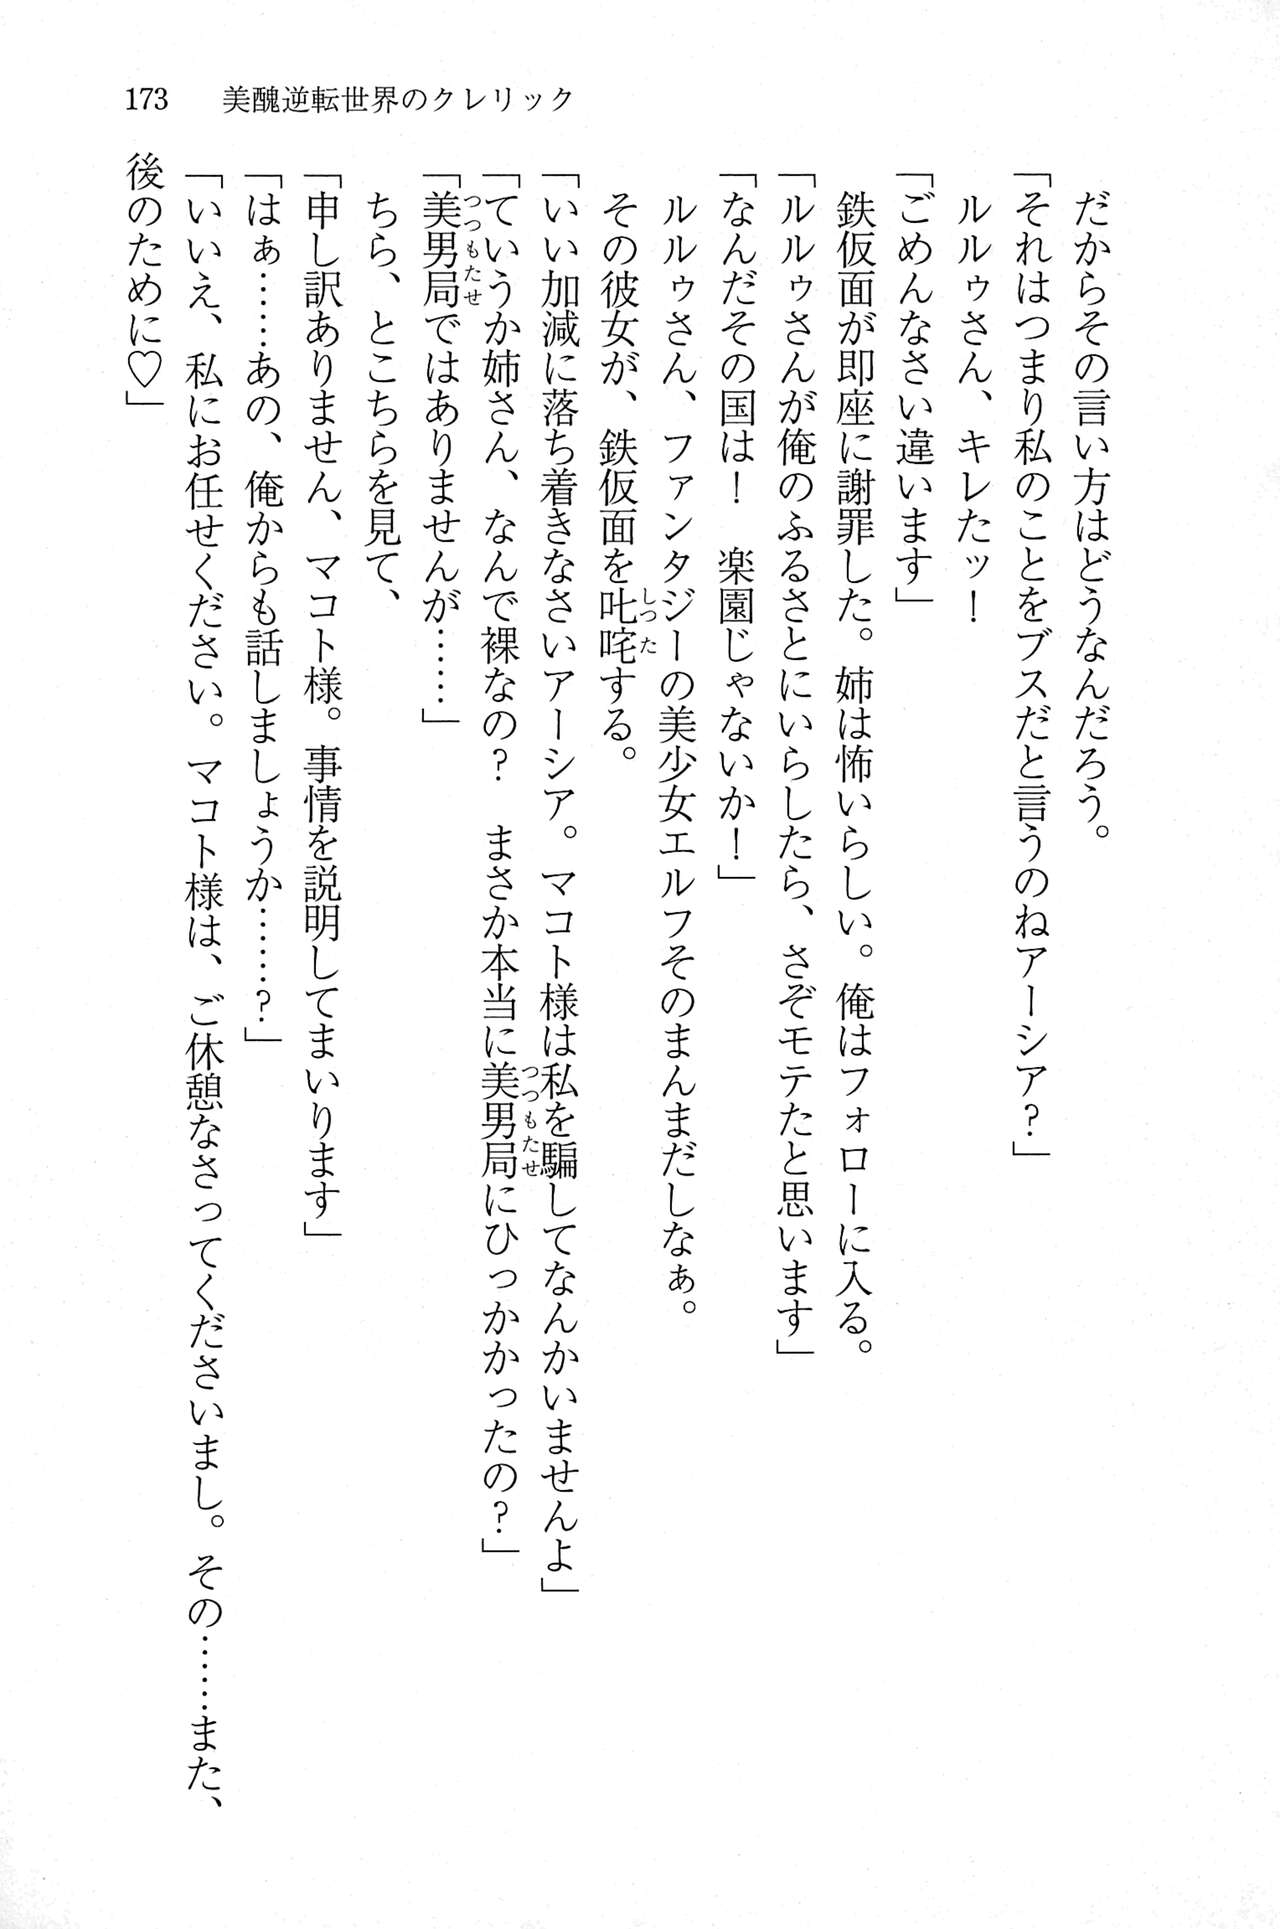 173　美醜逆転世界のクレリック
　だからその言い方はどうなんだろう。
「それはつまり私のことをブスだと言うのねアーシア？」
　ルルゥさん、キレたッ！
「ごめんなさい違います」
　鉄仮面が即座に謝罪した。姉は怖いらしい。俺はフォローに入る。
「ルルゥさんが俺のふるさとにいらしたら、さぞモテたと思います」
「なんだその国は！　楽園じゃないか！」
　ルルゥさん、ファンタジーの美少女エルフそのまんまだしなぁ。
　その彼女が、鉄仮面を叱咤しったする。
「いい加減に落ち着きなさいアーシア。マコト様は私を騙してなんかいませんよ」
「ていうか姉さん、なんで裸なの？　まさか本当に美男局つつもたせにひっかかったの？」
「美男局つつもたせではありませんが……」
　ちら、とこちらを見て、
「申し訳ありません、マコト様。事情を説明してまいります」
「はぁ……あの、俺からも話しましょうか……？」
「いいえ、私にお任せください。マコト様は、ご休憩なさってくださいまし。その……また、
後のために♡」